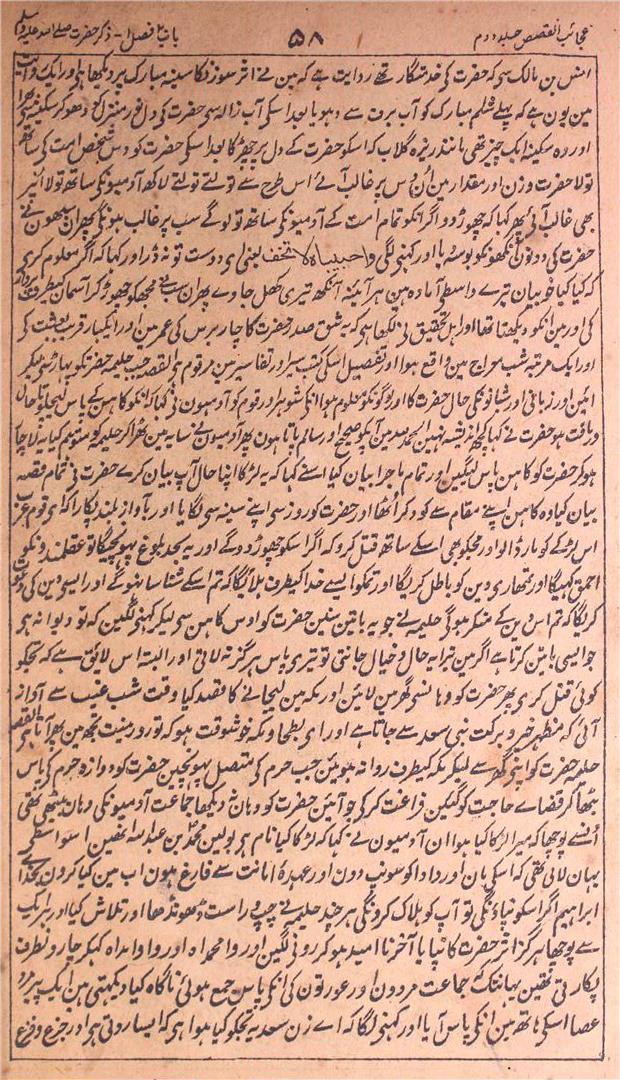 عجائب القصص جلد دوم ۵۸ باب ۲ فصل ۱- ذکر حضرت صلے اللہ علیہ وسلم
انس بن مالک سی کہ حضرت کی خدمتگار تھے روایت ہے کہ مین نے اثر سوزن کا سینہ مبارک پر دیکھا ہی اور ایک روایت
مین یون ہے کہ پہلے شکم مبارک کو آب برف سے دہویا بعد اسکی آب ژالہ سی حضرت کی دل نور منزل کو دھو کر سکینہ سی بھرا
اور وہ سکینہ ایک چیز تھی مانند ریزہ گلاب کہ اسکو حضرت کے دل پر چھڑکا بعد اسکی حضرت کو دس شخص امت کی ساتھ
تولا حضرت وزن اور مقدار مین اُن دس پر غالب آئے اس طرح سے تولتے تولتے لاکھ آدمیونکی ساتھ تولا آخر
بھی غالب آئی پھر کہا کہ چھوڑ دو اگر انکو تمام امت کے آدمیونکی ساتھ تولو گے سب پر غالب ہونگی پھر ان سبھون نے
حضرت کی دونون آنکھونکو بوسہ دیا اور کہنی لگی واحبیباہ لا تخف یعنی ای دوست تو نہ ڈر اور کہا کہ اگر معلوم کری
کہ کیا کیا خوبیان تیرے واسطی آمادہ ہین ہر آئینہ آنکھ تیری کھل جاوے پھر ان سب نے مجھکو چھوڑ کر آسمان کیطرف پرواز
کی اور مین انکو دیکھتا تھا اور اہل تحقیق نی لکھا ہی کہ یہ شق صدر حضرت کا چار برس کی عمر مین اور ایکبار قریب بعثت کی
اور ایک مرتبہ شب معراج مین واقع ہوا اور تفصیل اسکی کتب سیر اور تفاسیر مین مرقوم ہی القصہ جب حلیمہ حضرتکو پہاڑ سی لیکر
آئین اور زبانی اور شبانونکی حال حضرت کا اور لوگونکو معلوم ہوا انکا شوہر اور قوم کو آدمیون نی کہا کہ انکو کاہن کے پاس لیجاؤ تا حال
دریافت ہو حضرت نے کہا کچھ اندیشہ نہین الحمد للہ مین آپکو صحیح اور سالم پاتا ہون پھر آدمیون نے سایہ مین ٹھرا کر حلیمہ کو متوہم کیا لاچار
ہو کر حضرت کو کاہن پاس لیگئین اور تمام ماجرا بیان کیا اسنے کہا کہ یہ لڑکا اپنا حال آپ بیان کرے حضرت نی تمام قصہ
بیان کیا وہ کاہن اپنے مقام سے کود کر اُٹھا اور حضرت کو زور سی اپنے سینہ سی لگایا اور بآواز بلند پکارا کہ ای قوم عرب
اس لڑکے کو مار ڈالو اور مجکو بھی اسکے ساتھ قتل کرو کہ اگر اسکو چھوڑ دو گے اور یہ بحد بلوغ پہونچیگا تو عقلمندونکو
احمق کہیگا اور تمھاری دین کو باطل کریگا اور تمکو ایسے خدا کیطرف بلائیگا کہ تم اسکے شناسا نہو گے اور ایسی دین کی دعوت
کریگا کہ تم اس دین کے منکر ہو گی حلیمہ نے جو یہ باتین سنین حضرت کو اوس کاہن سی لیکر کہنی لگین کہ تو دیوانہ ہی
جو ایسی باتین کرتا ہے اگر مین تیرا یہ حال و خیال جانتی تو تیری پاس ہرگز نہ لاتی اور البتہ اس لائق ہے کہ تجکو
کوئی قتل کری پھر حضرت کو وہانسی گھر مین لائین اور مکہ مین لیجانے کا قصد کیا وقت شب غیب سے آواز
آئی کہ منظہر خیر و برکت بنی سعد سے جاتا ہے اور ای بطحا و مکہ خوشوقت ہو کہ نور و زینت تجھ مین پھر آتا ہی القصہ
حلیمہ حضرت کو اپنی گھر سے لیکر مکہ کیطرف روانہ ہوئین جب حرم کی متصل پہونچین حضرت کو دروازہ حرم کی پاس
بٹھا کر قضاے حاجت کو گئین فراغت کر کی جو آئین حضرت کو وہان نہ دیکھا جماعت آدمیونکی وہان بیٹھی تھی
اُنسے پوچھا کہ میرا لڑکا کیا ہوا ان آدمیون نے کہا کہ لڑکا کیا نام ہی بولین محمد بن عبداللہ انھین اسواسطی
یہان لائی تھی کہ اسکی مان اور دادا کو سونپ دون اور عہدہ امانت سے فارغ ہون اب مین کیا کرون بخدائے
ابراہیم اگر اسکو نپاؤنگی تو آپ کو ہلاک کرونگی ہر چند حلیمہ نے چپ و راست ڈھونڈھا اور تلاش کیا اور ہر ایک
سے پوچھا ہرگز اثر حضرت کا نپایا آخر نا امید ہو کر رونی لگین اور وا محمداہ اور وا ولداہ کہکر چارونطرف
پکارتی تھین یہانتک جماعت مردون اور عورتون کی انکی پاس جمع ہوئی ناگاہ کیا دیکھتی ہین ایک پیر مرد
عصا اسکی ہاتھ مین انکی پاس آیا اور کہنی لگا کہ اے زن سعدیہ تجکو کیا ہوا ہی کہ ایسا روتی ہی اور جزع و فزع